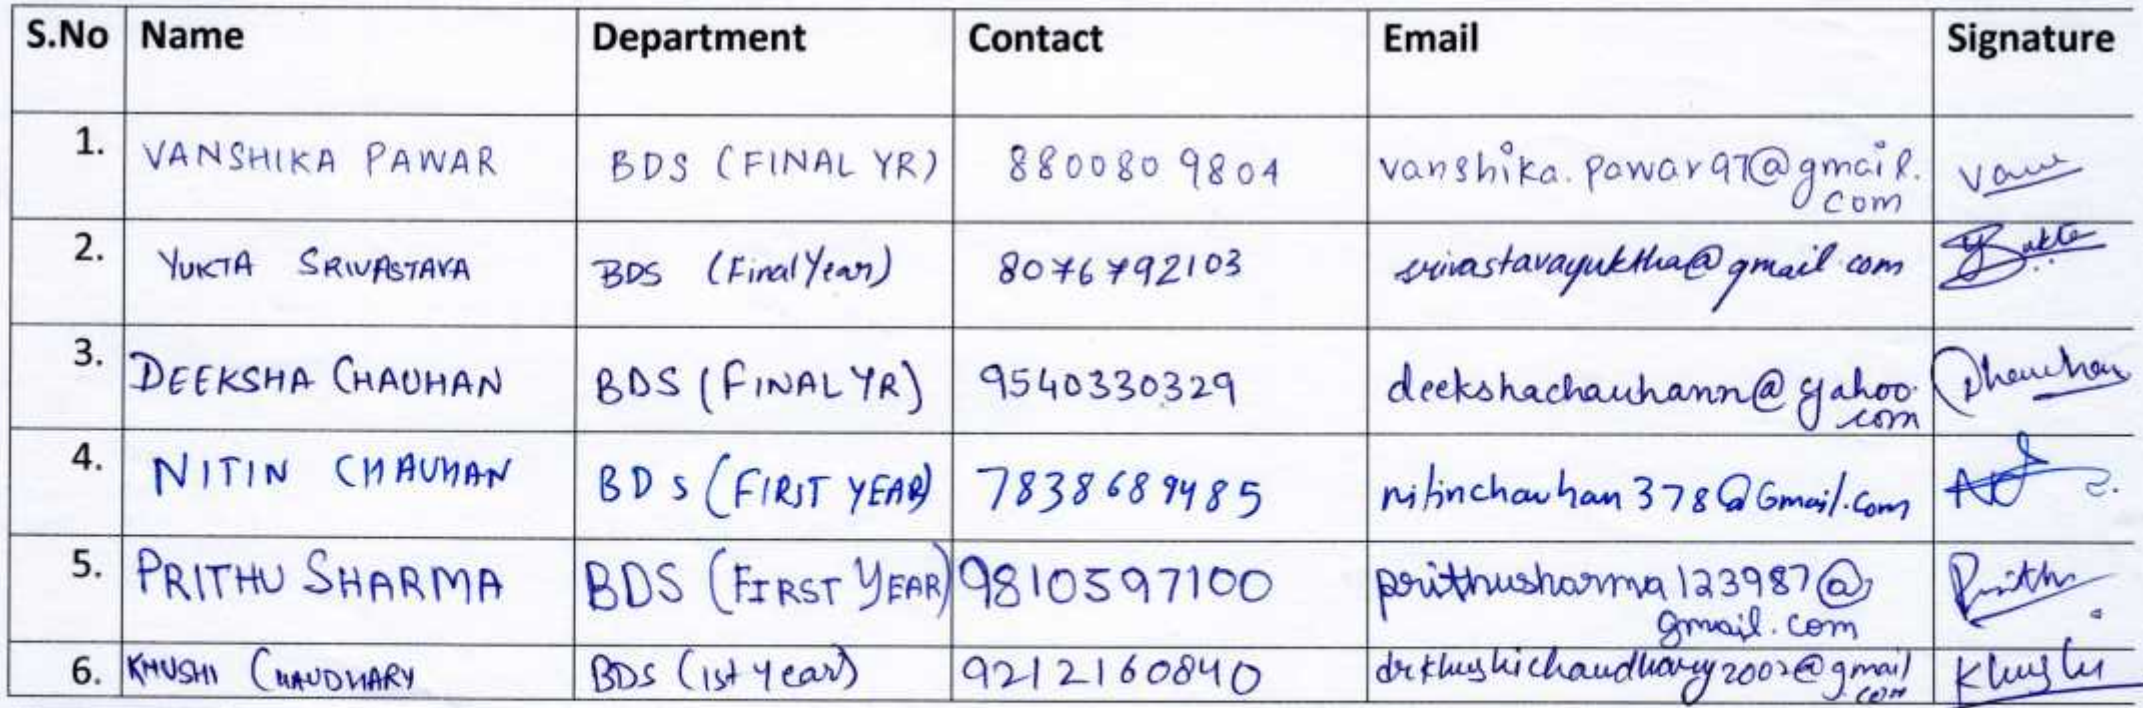 S.No Name Department Contact Email Signature
1. VANSHIKA PAWAR BDS (FINAL YR) 8800809804 vanshika.pawar97@gmail.
com
2. YUKTA SRIVASTAVA BDS (Final Year) 8076792103 srivastavayuktha@gmail.com Yukta
3. DEEKSHA CHAUHAN BDS (FINAL YR) 9540330329 deekshachauhann@yahoo.
com Dhauhan
4. NITIN CHAUHAN BDS (FIRST YEAR) 7838689485 nitinchauhan378@Gmail.com
5. PRITHU SHARMA BDS (FIRST YEAR) 9810597100 prithusharma123987@
gmail.com Prithu
6. KHUSHI CHAUDHARY BDS (1st year) 9212160840 drkhushichaudhary2002@gmail
com Khushi